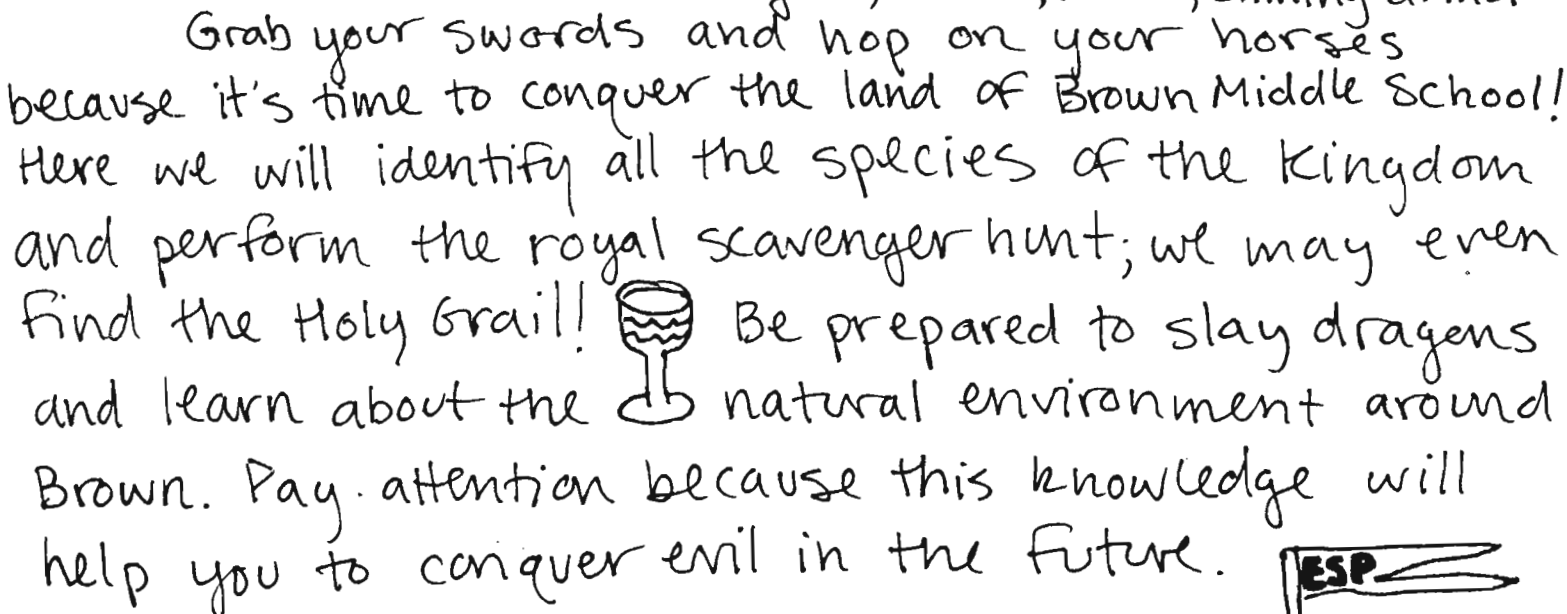 Grab your swords and hop on your horses
because it's time to conquer the land of Brown Middle School!
Here we will identify all the species of the Kingdom
and perform the royal scavenger hunt; we may even
find the Holy Grail! Be prepared to slay dragens
and learn about the natural environment around
Brown. Pay attention because this knowledge will
help you to conquer evil in the future.
ESP